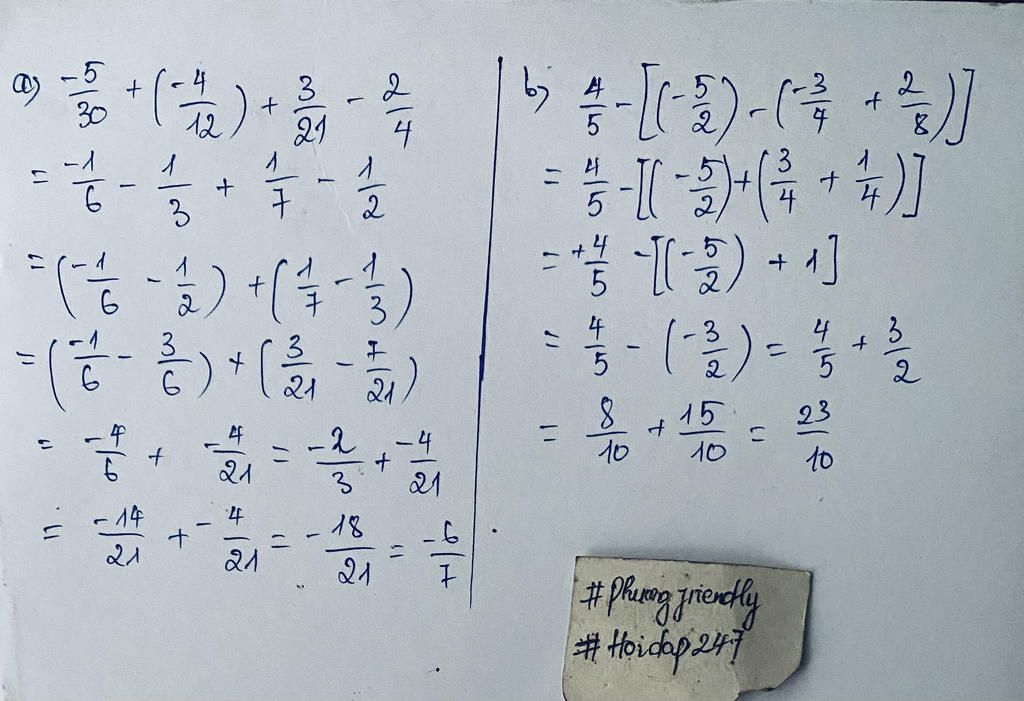 a) -5/30 + (-4/12) + 3/21 - 2/4
= -1/6 - 1/3 + 1/7 - 1/2
= (-1/6 - 1/2) + (1/7 - 1/3)
= (-1/6 - 3/6) + (3/21 - 7/21)
= -4/6 + -4/21 = -2/3 + -4/21
= -14/21 + -4/21 = -18/21 = -6/7
b) 4/5 - [(-5/2) - (-3/4 + 2/8)]
= 4/5 - [(-5/2) + (3/4 + 1/4)]
= +4/5 - [(-5/2) + 1]
= 4/5 - (-3/2) = 4/5 + 3/2
= 8/10 + 15/10 = 23/10
# Phuong friendly
# Hoidap247